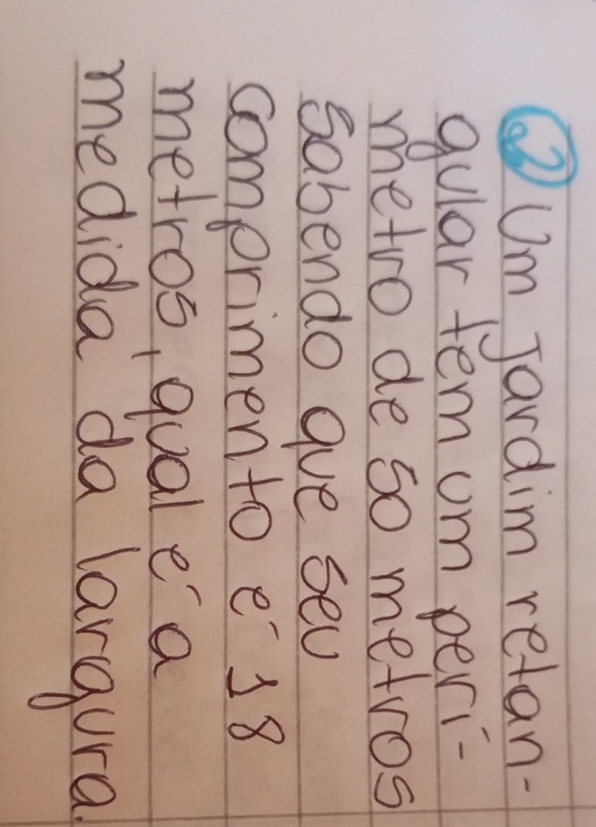 2 Um Jardim retan-
gular tem um perí-
metro de 50 metros
Sabendo que seu
comprimento é 18
metros, qual é a
medida da largura.